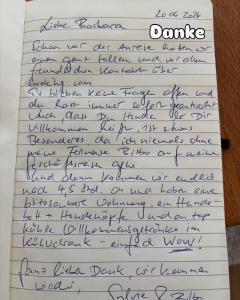 20.06.2026
Danke
Liebe Barbara
Schon vor der Anreise hatten wir
einen ganz tollen und vor allem
freundlichen Kontakt über
booking.com
Es blieben keine Fragen offen und
du hast immer sofort geantwortet
Auch dass Du Hunde bei Dir
Willkommen heißt, ist etwas
Besonderes da ich niemals ohne
meine Fellnase Bilbo auf eine
gehe
und dann kommen wir endlich
nach 4,5 Std. an und haben eine
blitzsaubere Wohnung, ein Hunde-
bett + Hundenäpfe und on top
kühle Willkommensgetränke im
Kühlschrank - einfach WOW!
Ganz lieben Dank, wir kommen
wieder,
Sylvie & Bilbo